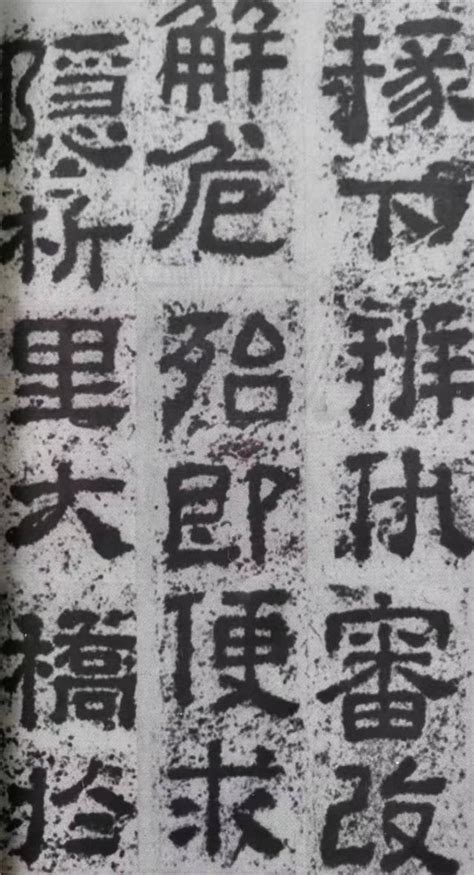 掾下辨仇審改
解危殆即便求
隱析里大橋扵